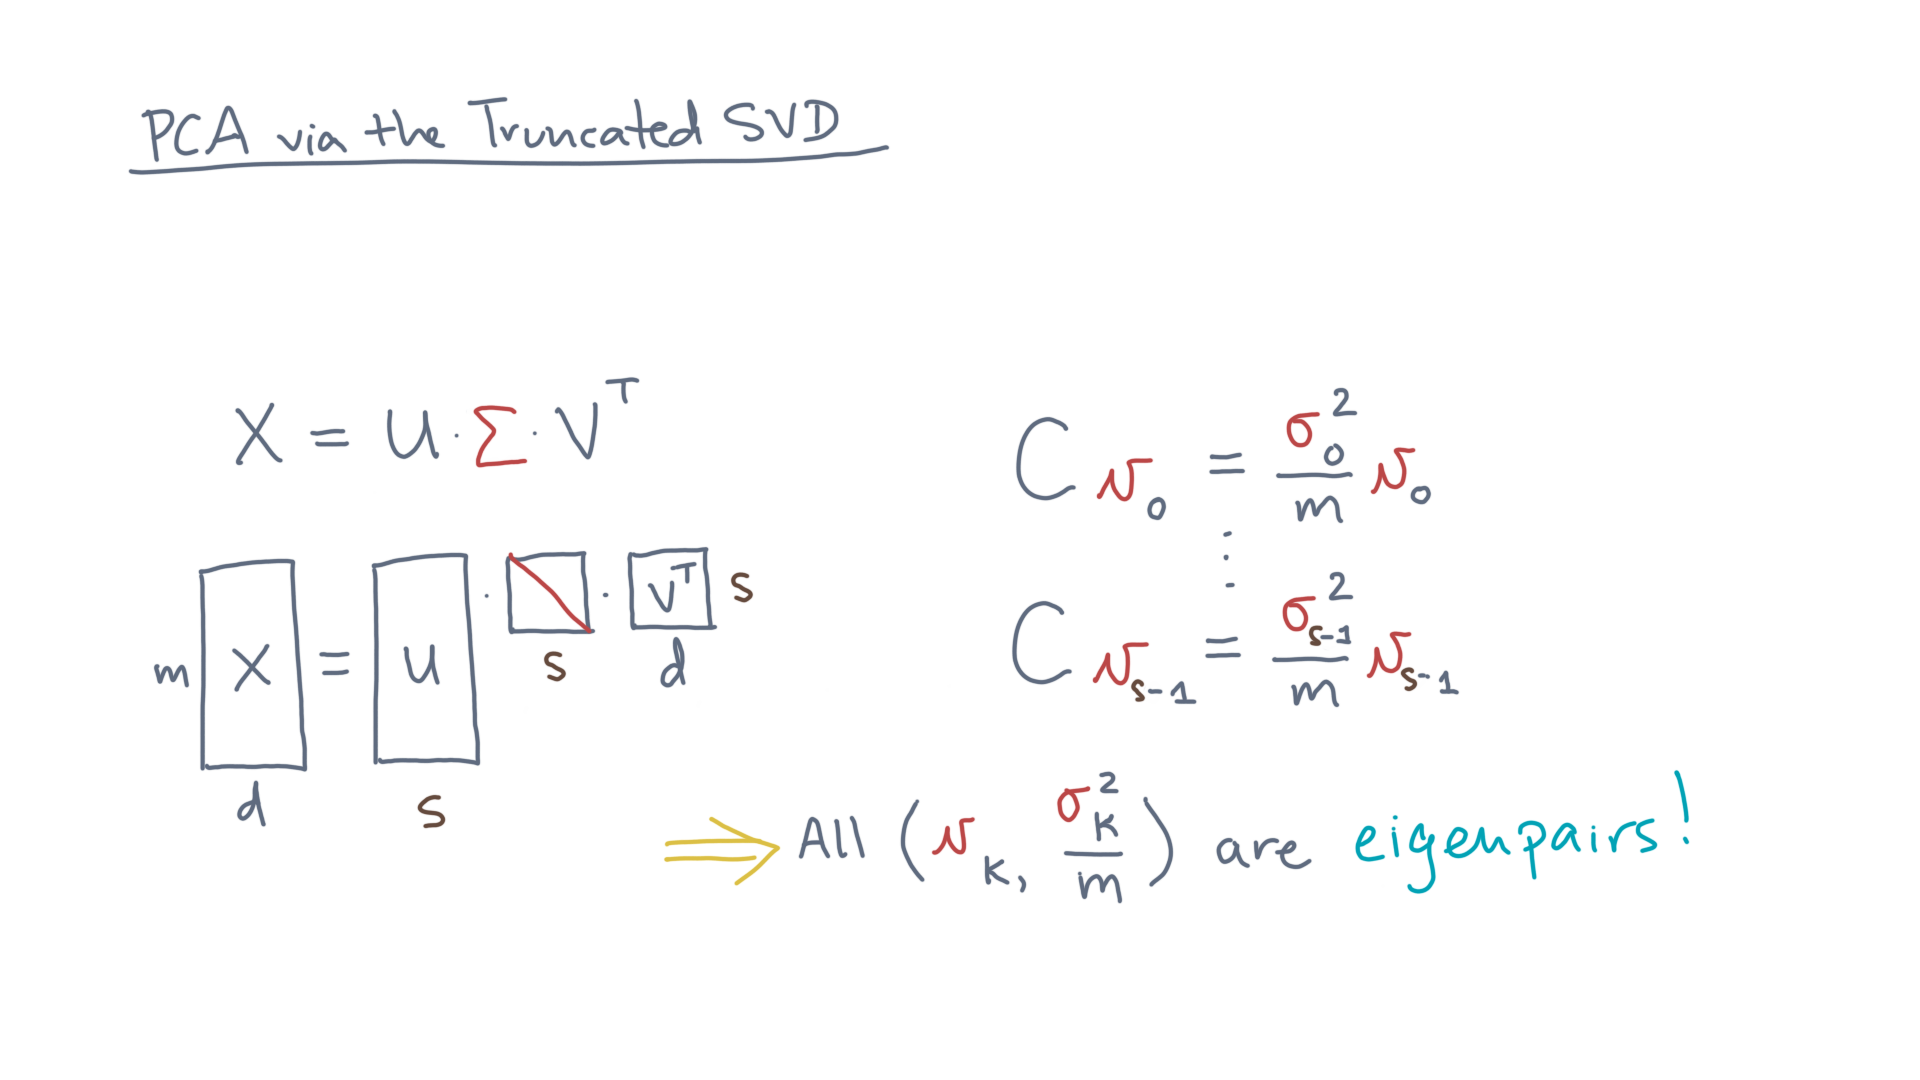 PCA via the Truncated SVD
X = U · Σ · Vᵀ
m X = U · · Vᵀ s
s d
d s
C v₀ = σ₀² / m v₀
⋮
C v_{s-1} = σ_{s-1}² / m v_{s-1}
⟹ All (v_k, σ_k² / m) are eigenpairs!